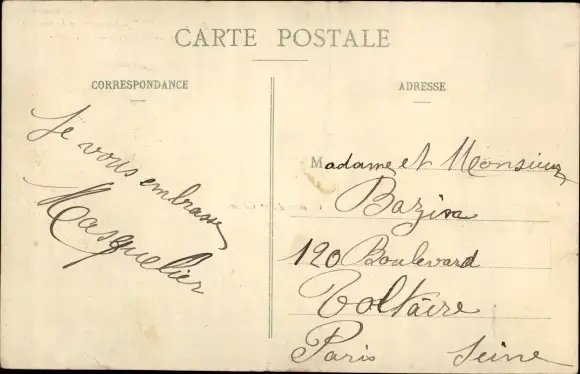 CARTE POSTALE
CORRESPONDANCE
ADRESSE
Je vous embrasse
Masquelier
Madame et Monsieur
Bazin
120 Boulevard
Voltaire
Paris Seine